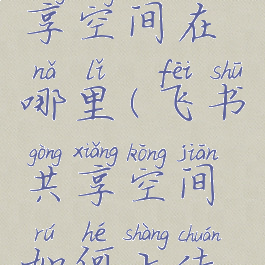 享空间在
nǎ lǐ fēi shū
哪里(飞书
gòng xiǎng kōng jiān
共享空间
rú hé shàng chuán
如何上传